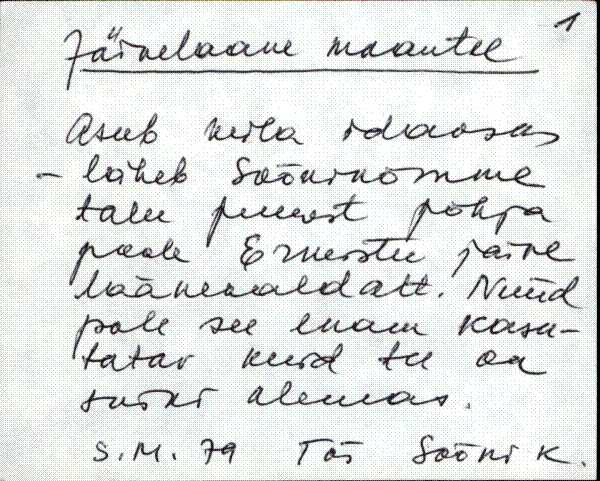 1
Järvelaane maantee
Asub küla idaosas
– läheb Söörinõmme
talu juurest põhja
poole Ermistu järve
läänekaldalt. Nüüd
pole see enam kasu-
tatav kuid tee on
siiski olemas.
S.M. 79 Tös Sööri K.